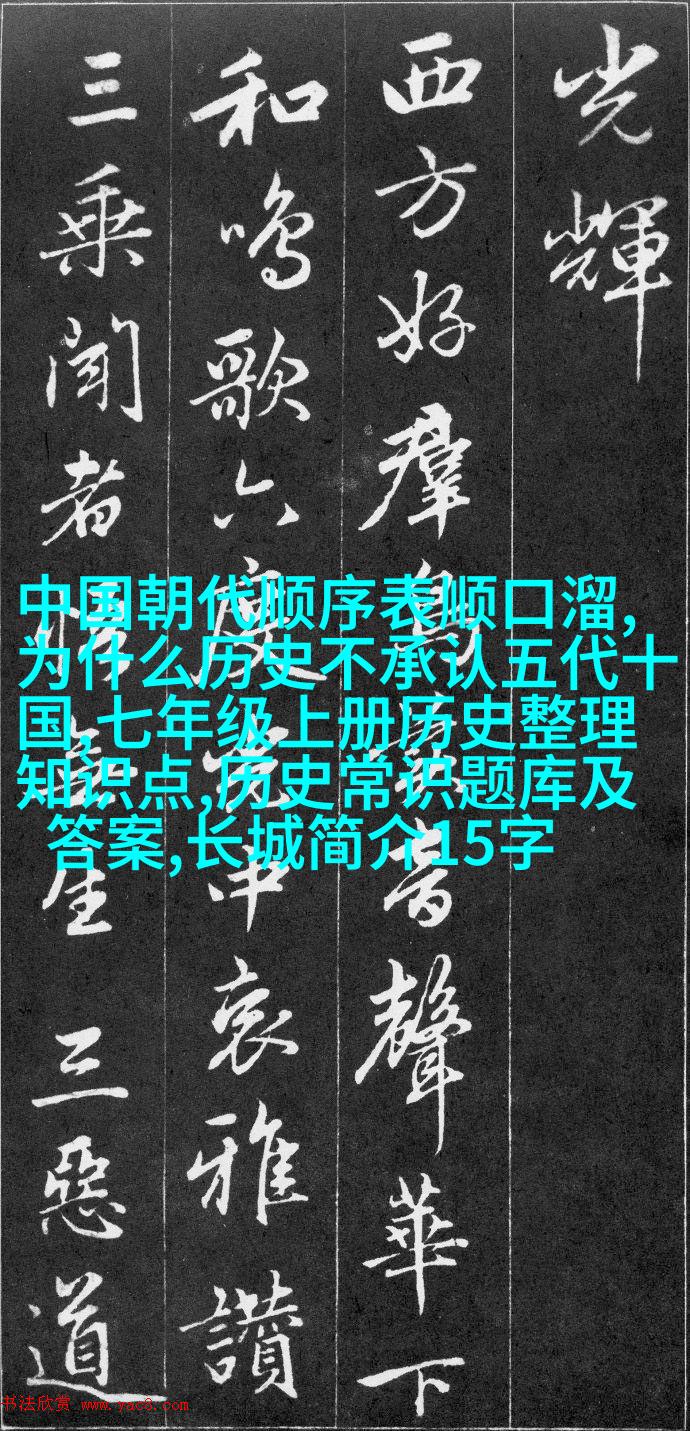 光輝
西方好羣鳥音聲華下
和鳴歌六度光中哀雅讚
三乘聞者悟無生三惡道
中国朝代顺序表顺口溜,
为什么历史不承认五代十
国,七年级上册历史整理
知识点,历史常识题库及
答案,长城简介15字
书法欣赏 www.yac8.com